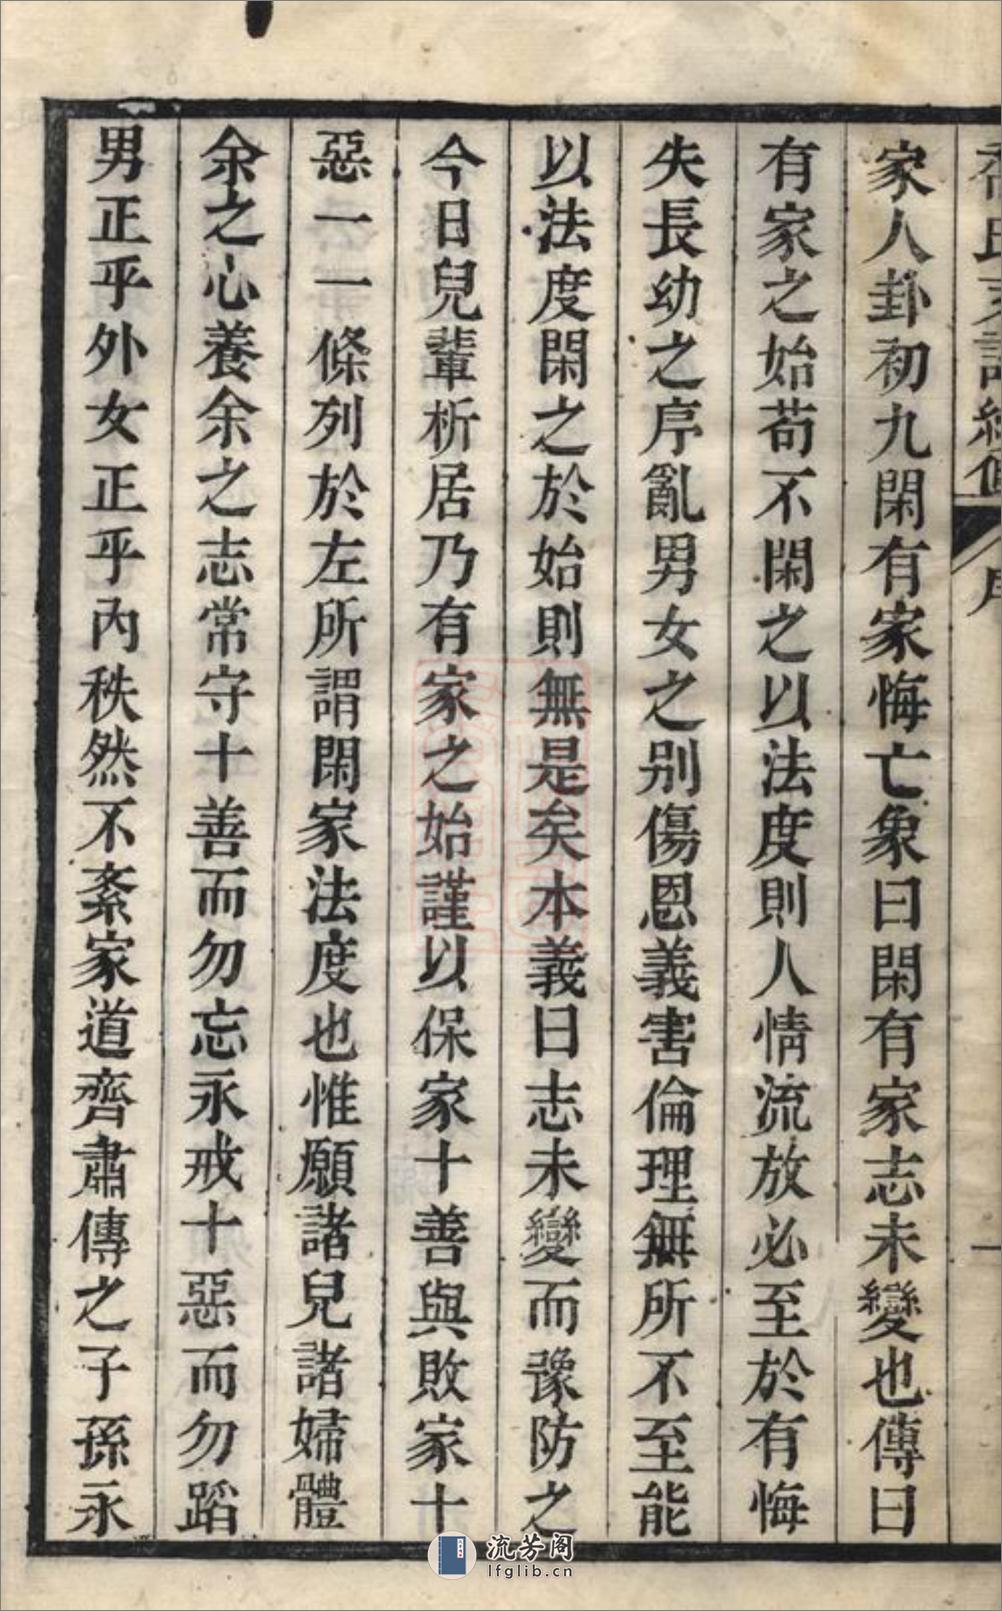 氏
序
一
家人卦初九閑有家悔亡象曰閑有家志未變也傳曰
有家之始苟不閑之以法度則人情流放必至於有悔
失長幼之序亂男女之别傷恩義害倫理無所不至能
以法度閑之於始則無是矣本義曰志未變而豫防之
今日兒輩析居乃有家之始謹以保家十善與敗家十
惡一一條列於左所謂閑家法度也惟願諸兒諸婦體
余之心養余之志常守十善而勿忘永戒十惡而勿蹈
男正乎外女正乎內秩然不紊家道齊肅傳之子孫永
流芳阁
lfglib.cn